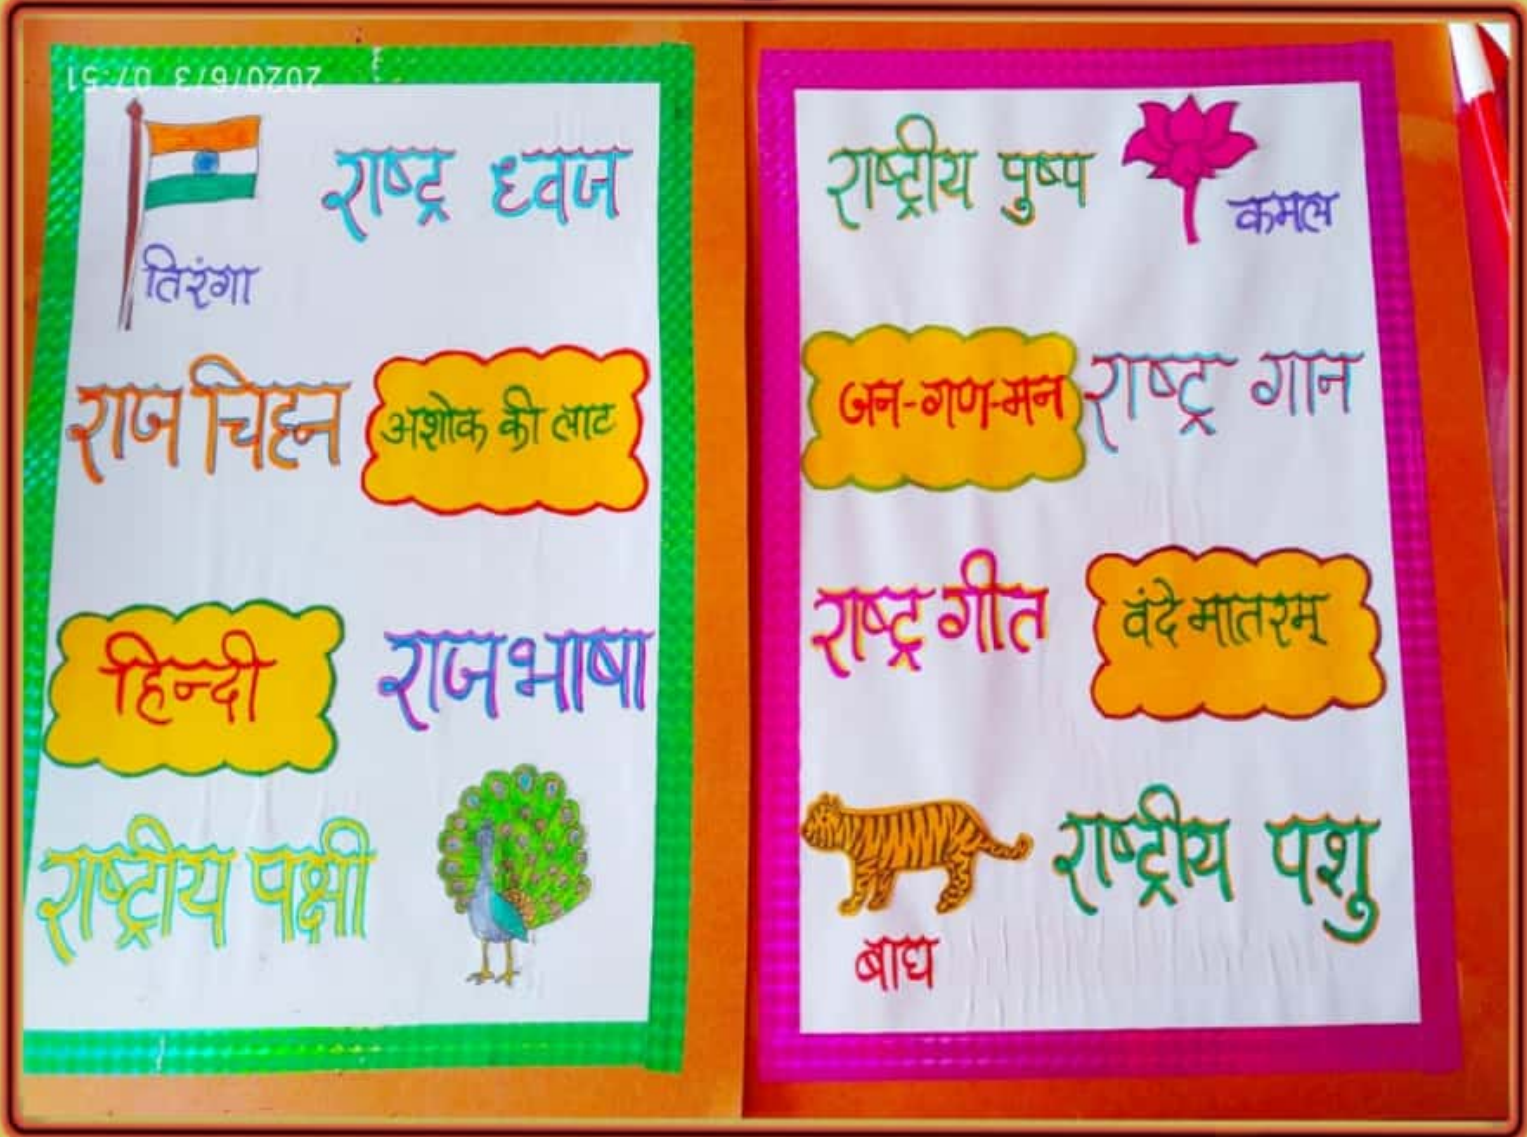 2020/6/3 07:51
राष्ट्र ध्वज
तिरंगा
राज चिहन अशोक की लाट
हिन्दी राजभाषा
राष्ट्रीय पक्षी
राष्ट्रीय पुष्प कमल
जन-गण-मन राष्ट्र गान
राष्ट्र गीत वंदे मातरम्
राष्ट्रीय पशु
बाघ